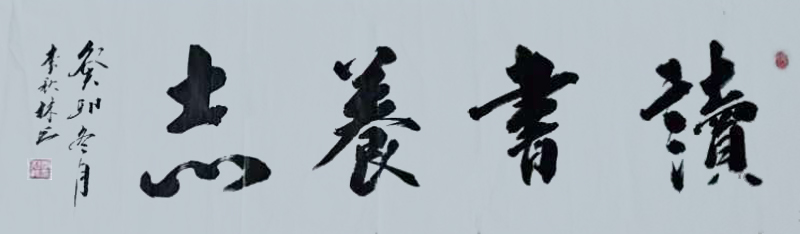 讀書養志
癸卯冬月
李秋林書